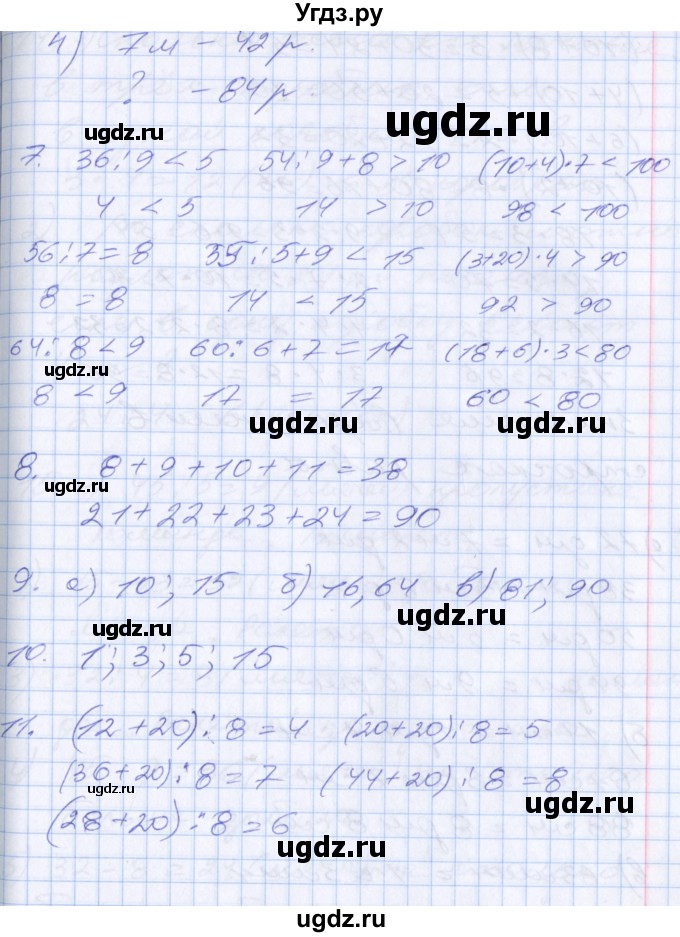 Угдз.ру
4) 7м – 42р.
? – 84р.
ugdz.ru ugdz.ru
7. 36:9 < 5 54:9+8 > 10 (10+4)·7 < 100
4 < 5 14 > 10 98 < 100
ugdz.ru
56:7 = 8 35:5+9 < 15 (3+20)·4 > 90
8 = 8 14 < 15 92 > 90
64:8 < 9 60:6+7 = 17 (18+6)·3 < 80
ugdz.ru
8 < 9 17 = 17 60 < 80
ugdz.ru ugdz.ru
8. 8+9+10+11 = 38
ugdz.ru
21+22+23+24 = 90
9. а) 10; 15 б) 16, 64 в) 81; 90
ugdz.ru ugdz.ru
10. 1; 3; 5; 15
11. (12+20):8 = 4 (20+20):8 = 5
ugdz.ru
(36+20):8 = 7 (44+20):8 = 8
ugdz.ru ugdz.ru
(28+20):8 = 6
ugdz.ru